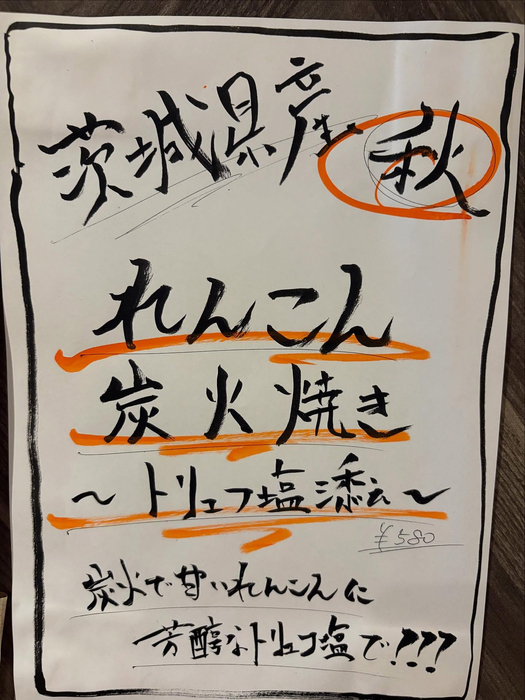 茨城県産 秋
れんこん
炭火焼き
~トリュフ塩添え~
¥580
炭火で甘いれんこんに
芳醇なトリュフ塩で!???